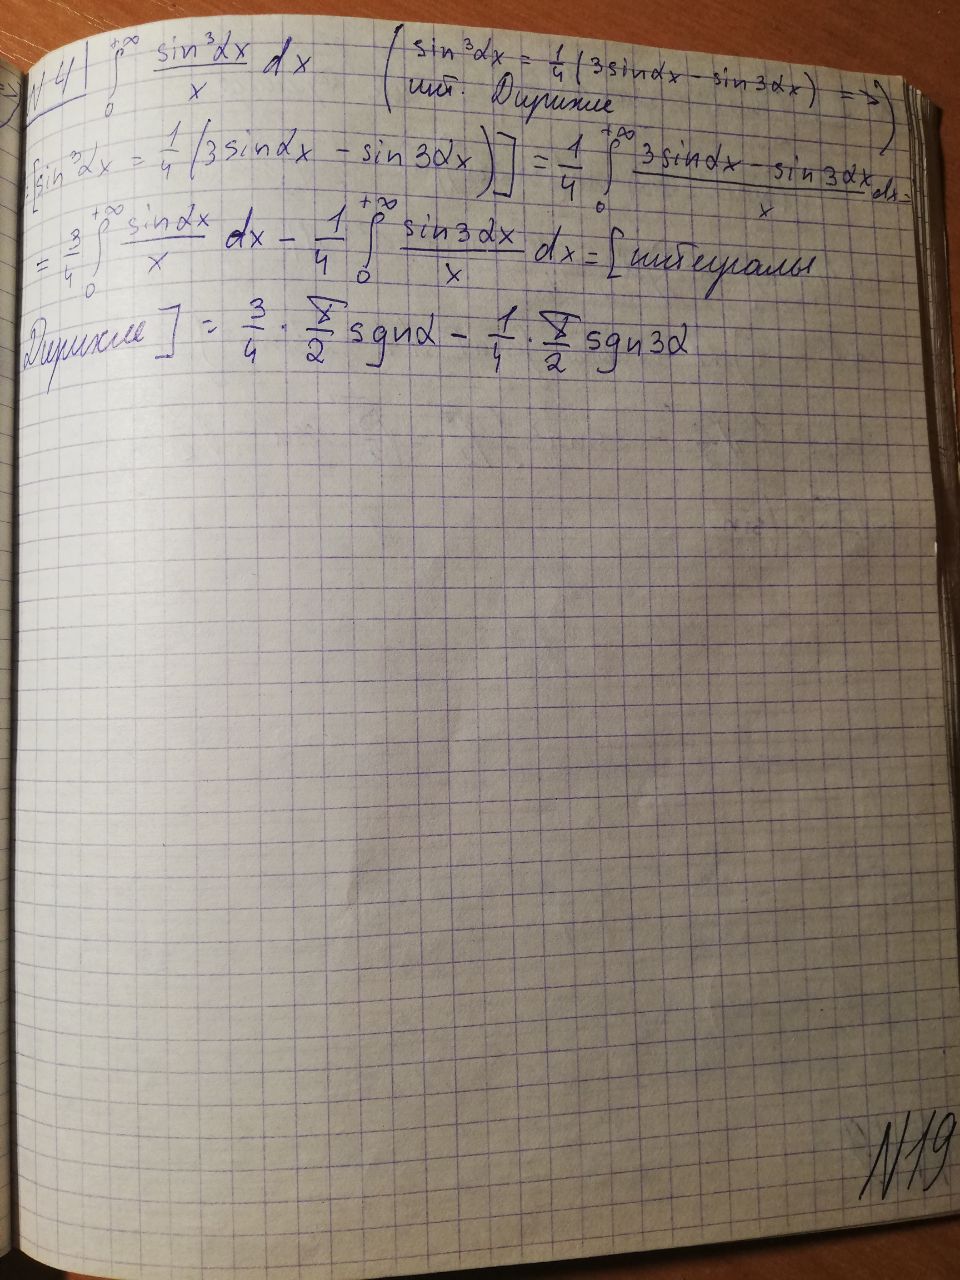 N4| ∫₀^{+∞} sin³αx/x dx ( sin³αx = 1/4 (3sinαx - sin3αx) =>
инт. Дирихле )
= [sin³αx = 1/4 (3sinαx - sin3αx)] = 1/4 ∫₀^{+∞} (3sinαx - sin3αx)/x dx =
= 3/4 ∫₀^{+∞} sinαx/x dx - 1/4 ∫₀^{+∞} sin3αx/x dx = [интегралы
Дирихле] = 3/4 · π/2 sgnα - 1/4 · π/2 sgn3α
N19